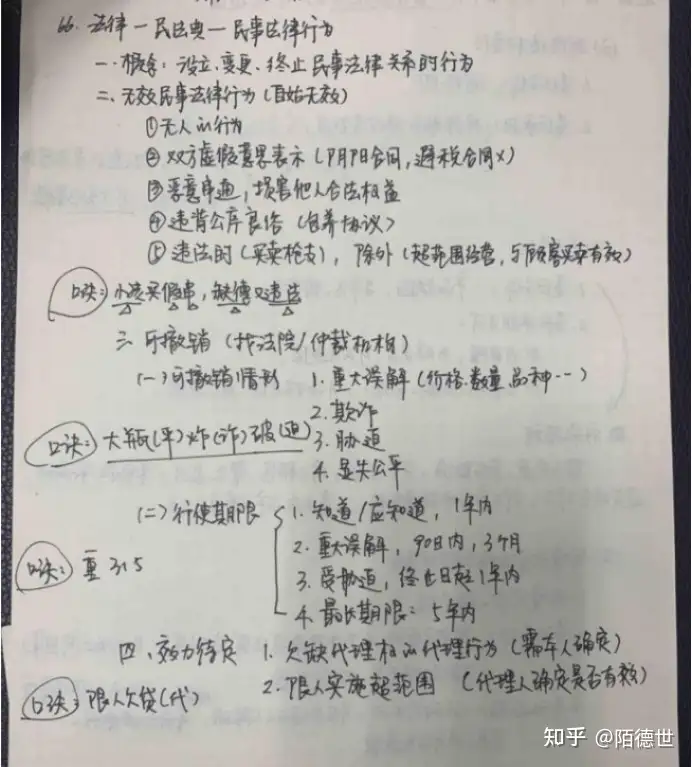 66. 法律—民法典—民事法律行为
一. 概念: 设立、变更、终止民事法律关系的行为
二. 无效民事法律行为 (自始无效)
①无人的行为
②双方虚假意思表示 (阴阳合同, 避税合同×)
③恶意串通, 损害他人合法权益
④违背公序良俗 (包养协议)
⑤违法的 (买卖枪支), 除外 (超范围经营, 与顾客买卖有效)
口诀: 买假串, 缺德又违法
三. 可撤销 (找法院/仲裁机构)
(一) 可撤销情形 1. 重大误解 (价格、数量、品种…)
2. 欺诈
口诀: 大瓶(平)炸(诈)破(迫) 3. 胁迫
4. 显失公平
(二) 行使期限 1. 知道/应知道, 1年内
2. 重大误解, 90日内, 3个月
口诀: 重315 3. 受胁迫, 终止日起1年内
4. 最长期限: 5年内
四. 效力待定 1. 欠缺代理权的代理行为 (需本人确定)
口诀: 限人欠贷(代) 2. 限人实施超范围 (代理人确定是否有效)
知乎 @陌德世